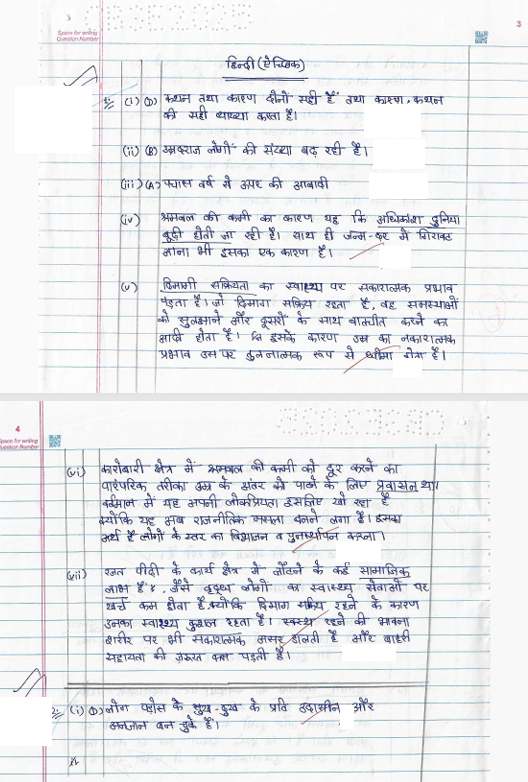 3
Space for writing
Question Number
हिन्दी (ऐच्छिक)
1. (i) (D) कथन तथा कारण दोनों सही हैं तथा कारण, कथन
की सही व्याख्या करता है।
(ii) (B) उम्रदराज लोगों की संख्या बढ़ रही है।
(iii) (A) पचास वर्ष से ऊपर की आबादी
(iv) श्रमबल की कमी का कारण यह कि अधिकांश दुनिया
बूढ़ी होती जा रही है। साथ ही जन्म-दर में गिरावट
आना भी इसका एक कारण है।
(v) दिमागी सक्रियता का स्वास्थ्य पर सकारात्मक प्रभाव
पड़ता है। जो दिमाग सक्रिय रहता है, वह समस्याओं
को सुलझाने और दूसरों के साथ बातचीत करने का
आदी होता है। इसके कारण उम्र का नकारात्मक
प्रभाव उस पर तुलनात्मक रूप से धीमा होता है।
4
Space for writing
Question Number
(vi) कारोबारी क्षेत्र में श्रमबल की कमी को दूर करने का
पारंपरिक तरीका उम्र के अंतर को पाटने के लिए प्रवासन था।
वर्तमान में यह अपनी लोकप्रियता इसलिए खो रहा है
क्योंकि यह अब राजनीतिक मसला बनने लगा है। इसका
अर्थ है लोगों के स्तर का विभाजन व पुनर्स्थापन करना।
(vii) रजत पीढ़ी के कार्य क्षेत्र में लौटने के कई सामाजिक
लाभ हैं, जैसे वृद्ध लोगों का स्वास्थ्य सेवाओं पर
खर्च कम होता है, क्योंकि दिमाग सक्रिय रहने के कारण
उनका स्वास्थ्य कुशल रहता है। स्वस्थ रहने की भावना
शरीर पर भी सकारात्मक असर डालती है और बाहरी
सहायता की ज़रूरत कम पड़ती है।
2. (i) (D) लोग पड़ोस के सुख-दुख के प्रति उदासीन और
अनजान बन चुके हैं।